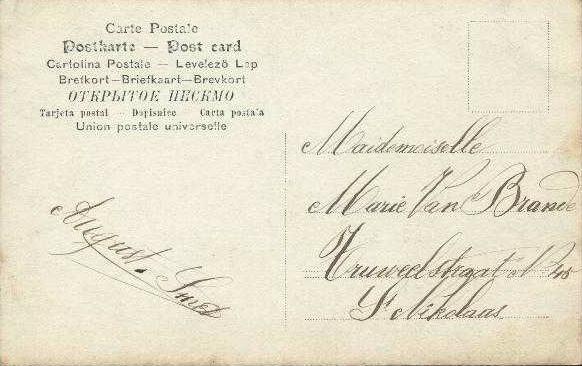 Carte Postale
Postkarte — Post card
Cartolina Postale — Levelező Lap
Brefkort—Briefkaart—Brevkort
ОТКРЫТОЕ ПИСЬМО
Tarjeta postal — Dopisnice Carta postala
Union postale universelle
Maidemoiselle
Marie Van Brande
Truweelstraat N
St Nikolaas
August. Smet